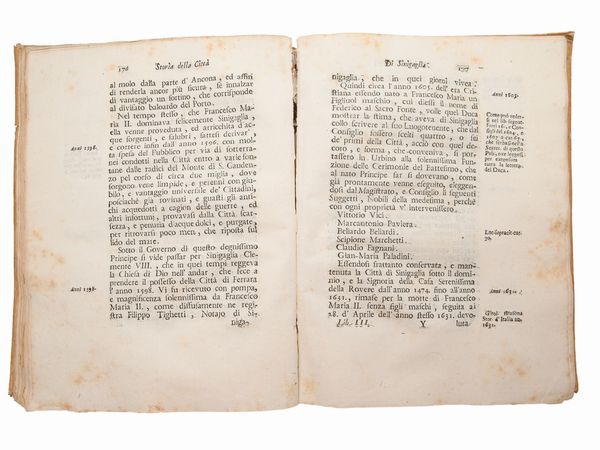 176 Storia della Città
al molo dalla parte d'Ancona, ed affin
di renderla ancor più sicura, fe innalzar
di vantaggio un fortino, che corrisponde
al divisato baloardo del Porto.
Nel tempo stesso, che Francesco Ma-
ria II. dominava felicemente Sinigaglia,
ella venne proveduta, ed arricchita d'ac-
que sorgenti, e salubri, fattesi derivar,
Anni 1596.
e correre insin dall'anno 1596. con mol-
ta spesa del Pubblico per via di sotterra-
nei condotti nella Città entro a varie fon-
tane dalle radici del Monte di S. Gauden-
zo pel corso di circa due miglia, dove
sorgono vene limpide, e perenni con giu-
bilo, e vantaggio universale de' Cittadini,
posciachè già rovinati, e guasti gli anti-
chi acquedotti a cagion delle guerre, ed
altri infortunj, provavasi dalla Città scar-
sezza, e penuria d'acque dolci, e purgate,
per ritrovarsi poco men, che riposta sul
lido del mare.
Sotto il Governo di questo degnissimo
Principe si vide passar per Sinigaglia Cle-
mente VIII. che in quei tempi reggeva
la Chiesa di Dio nell'andar, che fece a
prendere il possesso della Città di Ferrara
Anni 1598.
l'anno 1598. Vi fu ricevuto con pompa,
e magnificenza solennissima da Francesco
Maria II., come diffusamente ne regi-
stra Filippo Tighetti, Notajo di Si-
niga-
Di Sinigaglia. 177
nigaglia, che in quei giorni vivea.
Quindi circa l'anno 1605. dell'era Cri-
Anni 1605.
stiana essendo nato a Francesco Maria un
Figliuol maschio, cui diessi il nome di
Federico al Sacro Fonte, volle quel Duca
mostrar la stima, che aveva di Sinigaglia
collo scrivere al suo Luogotenente, che dal
Consiglio fossero scelti quattro, o sei
de' primi della Città, acciò con quel de-
coro, e forma, che conveniva, si por-
tassero in Urbino alla solennissima Fun-
zione delle Cerimonie del Battesimo, che
al nato Principe far si dovevano, come
già prontamente venne eseguito, eleggen-
dosi dal Magistrato, e Consiglio i seguenti
Suggetti, Nobili della medesima, perchè
con ogni proprietà v' intervenissero.
Vittorio Vici.
Marcantonio Paviera.
Beliardo Beliardi.
Scipione Marchetti.
Claudio Fagnani.
Gian-Maria Paladini.
Essendosi frattanto conservata, e man-
tenuta la Città di Sinigaglia sotto il domi-
nio, e la Signoria della Casa Serenissima
della Rovere dall'anno 1474. sino all'anno
1631. rimase per la morte di Francesco
Maria II. senza figli maschi, seguita ai
28. d'Aprile dell'anno stesso 1631. devo-
Lib. III. Y luta